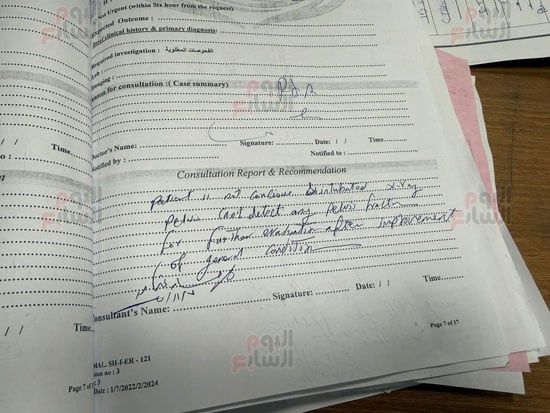 Not Urgent (within Six hour from the request)
Expected Outcome :
Brief clinical history & primary diagnosis:
الفحوصات المطلوبة : Required investigation
Lab :
Imaging :
Reason for consultation :( Case summary)
Doctor's Name: Signature: Date: / / Time
Notified by : Notified to :
Consultation Report & Recommendation
Patient is not concious & intubated x-ray
pelvis can't detect any pelvic fractur
for further evaluation after improvement
of general condition
Consultant's Name: Signature: Date: / / Time
Page 7 of 17
SH-f-ER - 121
: 3
Date : 1/7/2022/2/2024
Page 7 of
/ / Time
اليوم السابع